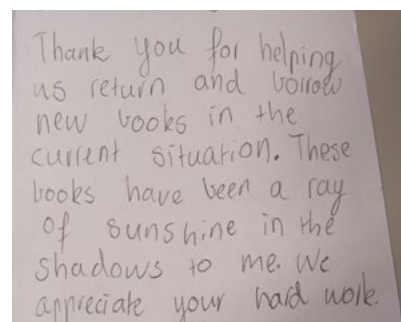 Thank you for helping
us return and borrow
new books in the
current situation. These
books have been a ray
of sunshine in the
shadows to me. We
appreciate your hard work.